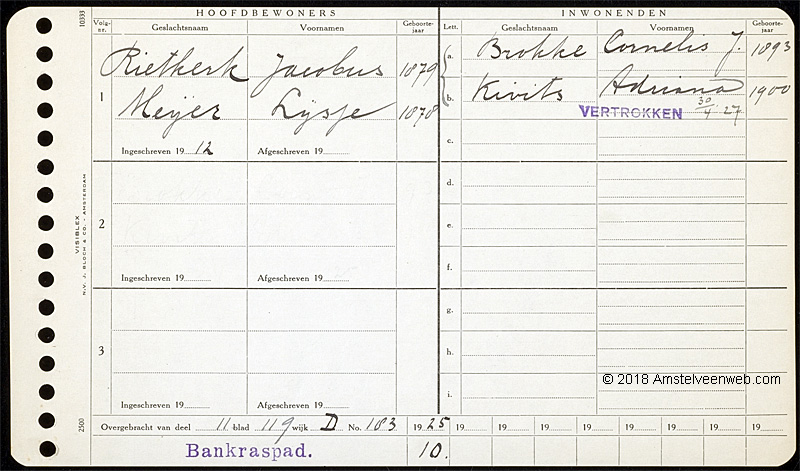 10333
HOOFDBEWONERS
INWONENDEN
Volg-nr. Geslachtsnaam Voornamen Geboorte-jaar
Lett. Geslachtsnaam Voornamen Geboorte-jaar
1
Rietkerk Jacobus 1879
Meijer Lijsje 1878
Ingeschreven 19 12 Afgeschreven 19
a. Brokke Cornelis J. 1893
b. Kivits Adriana 1900
VERTROKKEN 30/4 27
c.
2
Ingeschreven 19 Afgeschreven 19
d.
e.
f.
3
Ingeschreven 19 Afgeschreven 19
g.
h.
i.
VISIBLEX
N.V. J. BLOCH & CO. - AMSTERDAM
2500
© 2018 Amstelveenweb.com
Overgebracht van deel 11 blad 119 wijk D No. 183 19 25 19 19 19 19 19 19 19 19
Bankraspad. 10.